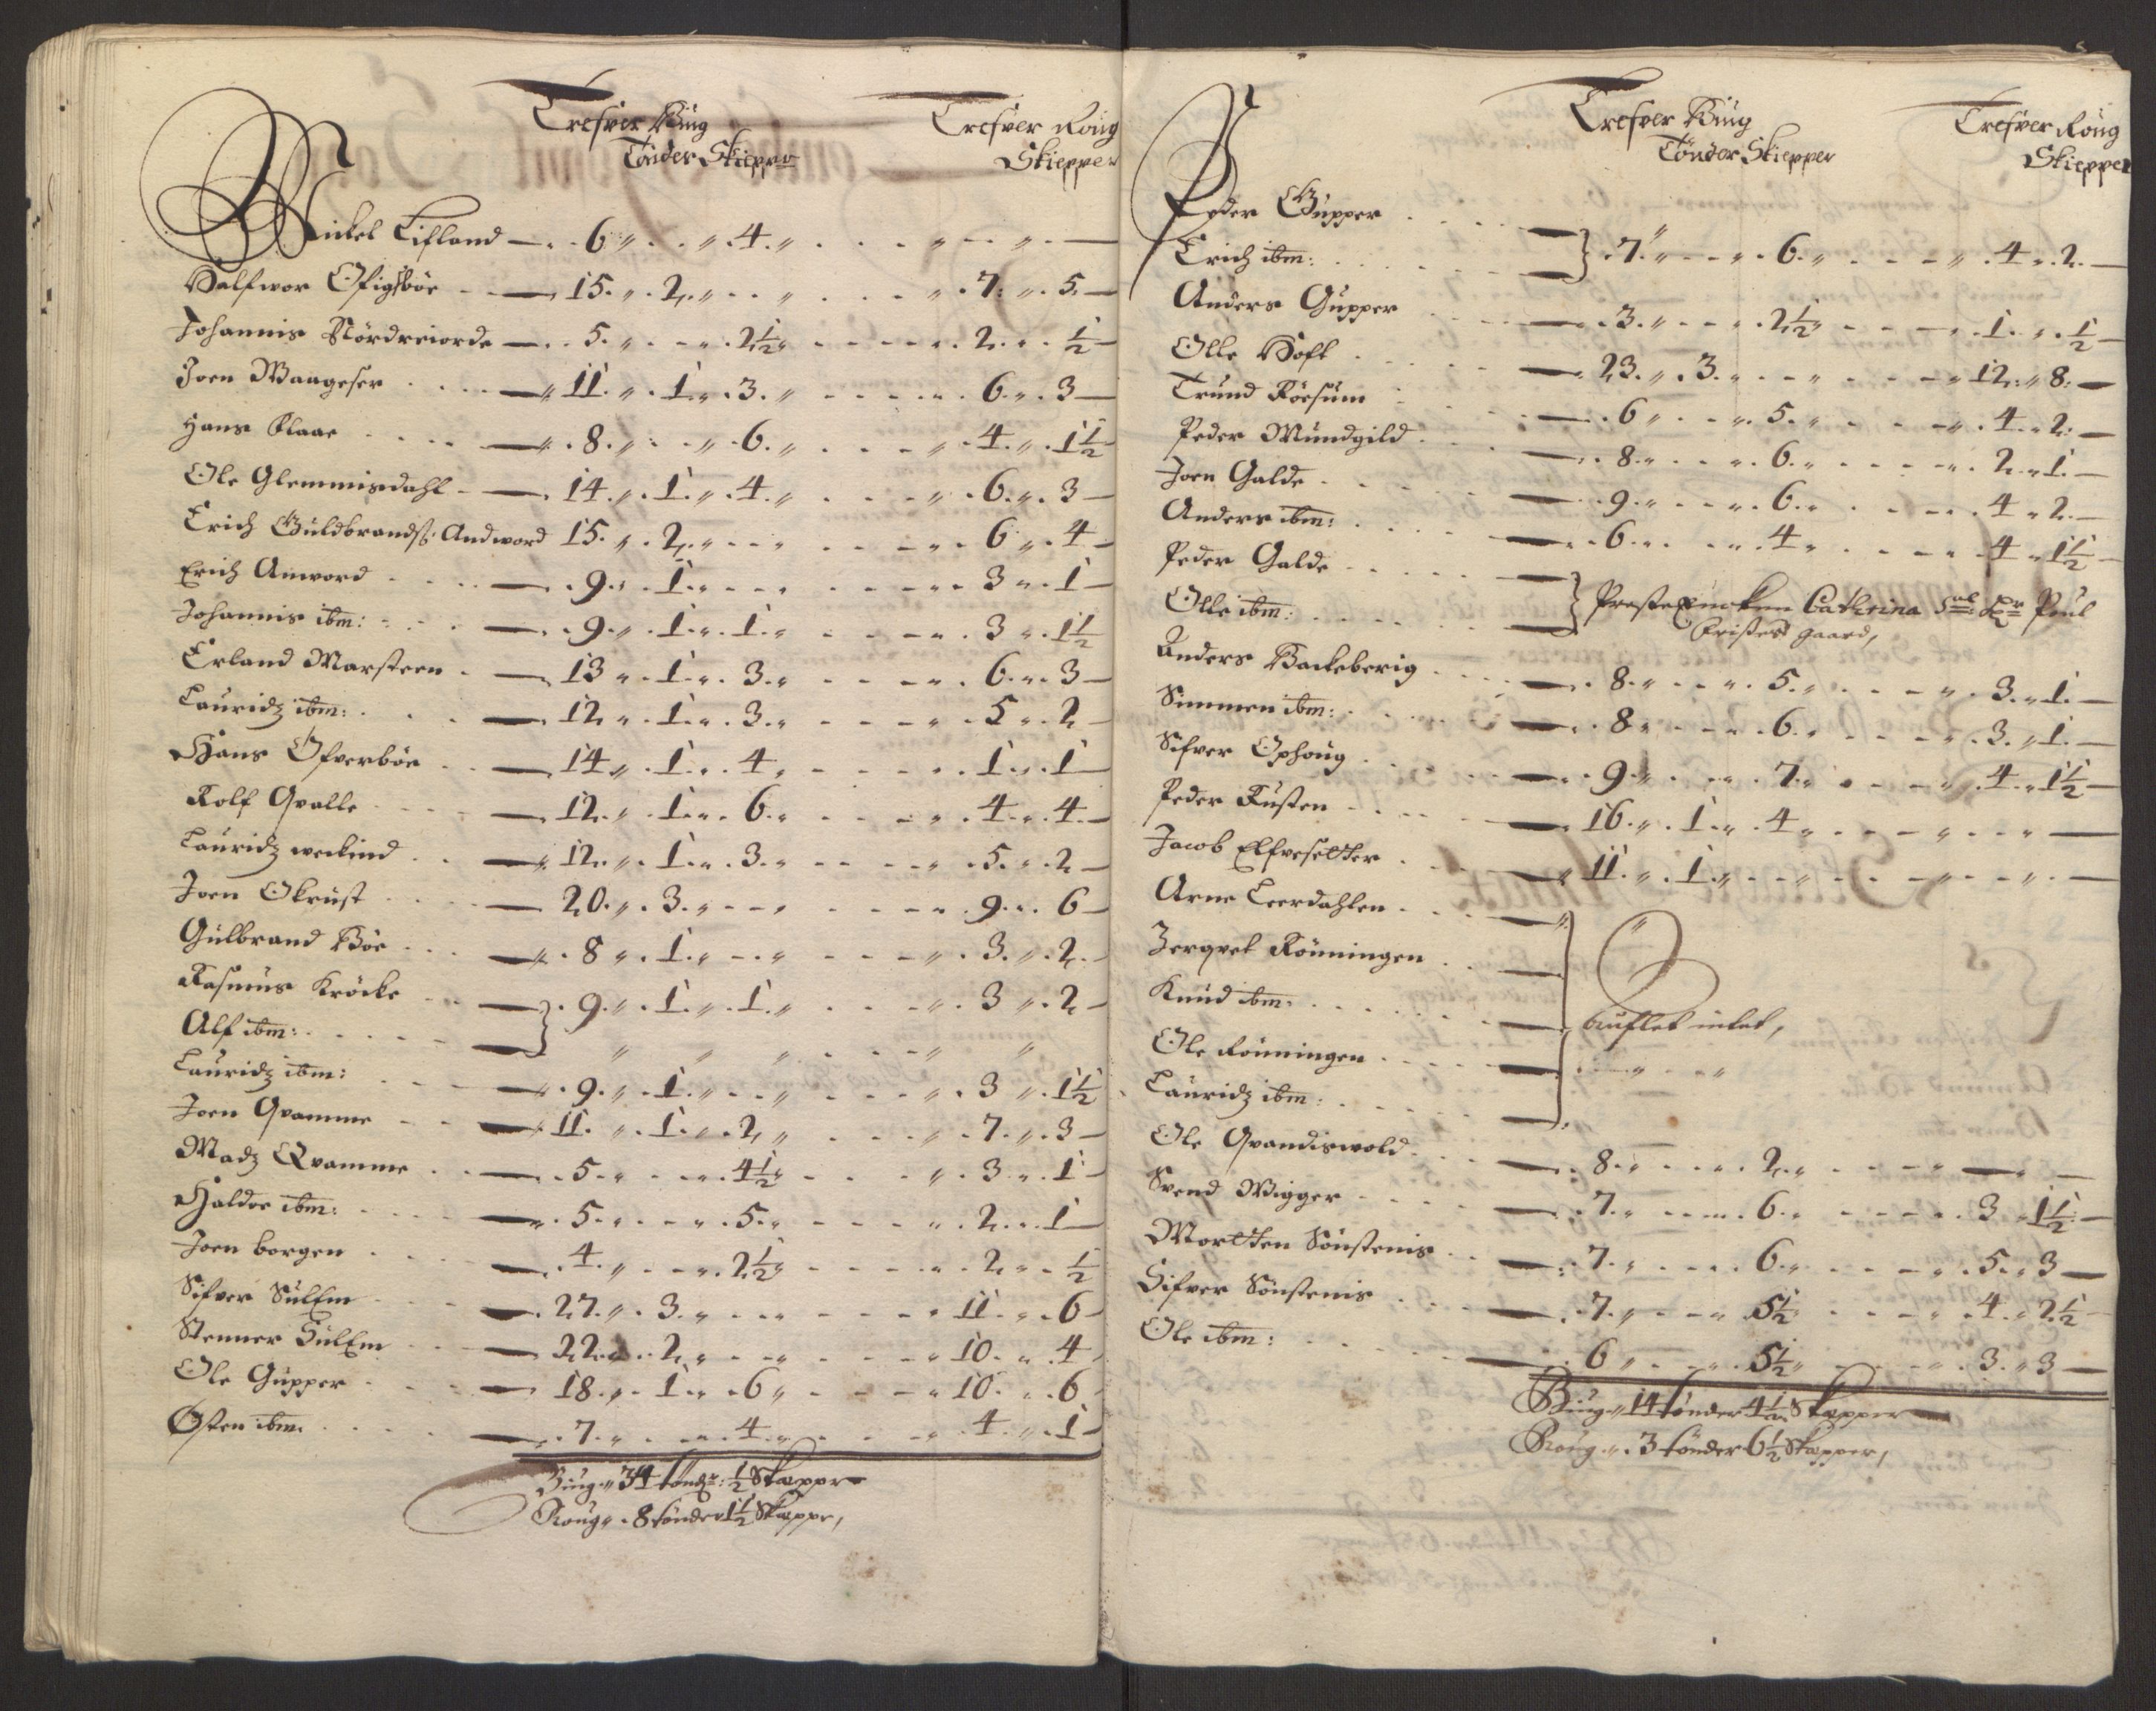 Trefver Biug
Tönder Skiepper
Trefver Roug
Skiepper
Nickel Lifland 6 4
Halfwor Ofigsböe 15 2 7 5
Johannis Nördreiorde 5 2½ 2 ½
Joen Waageser 11 1 3 6 3
Hans Klaae 8 6 4 1½
Ole Glemmisdahl 14 1 4 6 3
Erich Guldbrandß: Andword 15 2 6 4
Erich Anword 9 1 3 1
Johannis ibm: 9 1 1 3 1½
Erland Marsteen 13 1 3 6 3
Lauridz ibm: 12 1 3 5 2
Hans Ofverböe 14 1 4 1 1
Rolf Qvalle 12 1 6 4 4
Lauridz weckind 12 1 3 5 2
Joen Okrust 20 3 9 6
Gulbrand Böe 8 1 3 2
Rasmus Kröcke 9 1 1 3 2
Alf ibm:
Lauridz ibm: 9 1 3 1½
Joen Qvamme 11 1 2 7 3
Madz Qvamme 5 4½ 3 1
Haldoe ibm: 5 5 2 1
Joen borgen 4 2½ 2 ½
Sifver Sulem 27 3 11 6
Stenner Sulem 22 2 10 4
Ole Gupper 18 1 6 10 6
Østen ibm: 7 4 4 1
Biug 34 tönd: ½ Skeppe
Roug 8 tönder 1½ Skeppe,
Trefver Biug
Tönder Skiepper
Trefver Roug
Skiepper
Peder Gupper
Erich ibm: 7 6 4 2
Anders Gupper 3 2½ 1 ½
Olle Hofl 23 3 12 8
Trund Röesum 6 5 4 2
Peder Mundgild 8 6 2 1
Joen Galde 9 6 4 2
Anders ibm: 6 4 4 1½
Peder Galde
Olle ibm: Presteencken Catherina Sal Hr Poul
Fristed gaard,
Anders Backeberig 8 5 3 1
Simmen ibm: 8 6 3 1
Sifver Ophoug 9 7 4 1½
Peder Rusten 16 1 4
Jacob Elfvesetter 11 1
Arne Leerdahlen
Zergvel Rönningen
Knud ibm: bruflet intet,
Ole Rönningen
Lauridz ibm:
Ole Qvandiswold 8 2
Svend Wigger 7 6 3 1½
Mortten Sönstenis 7 6 5 3
Sifver Sönstenis 7 5½ 4 2½
Ole ibm: 6 5½ 3 3
Biug 14 tönder 4½ Skepper
Roug 3 tönder 6½ Skepper,